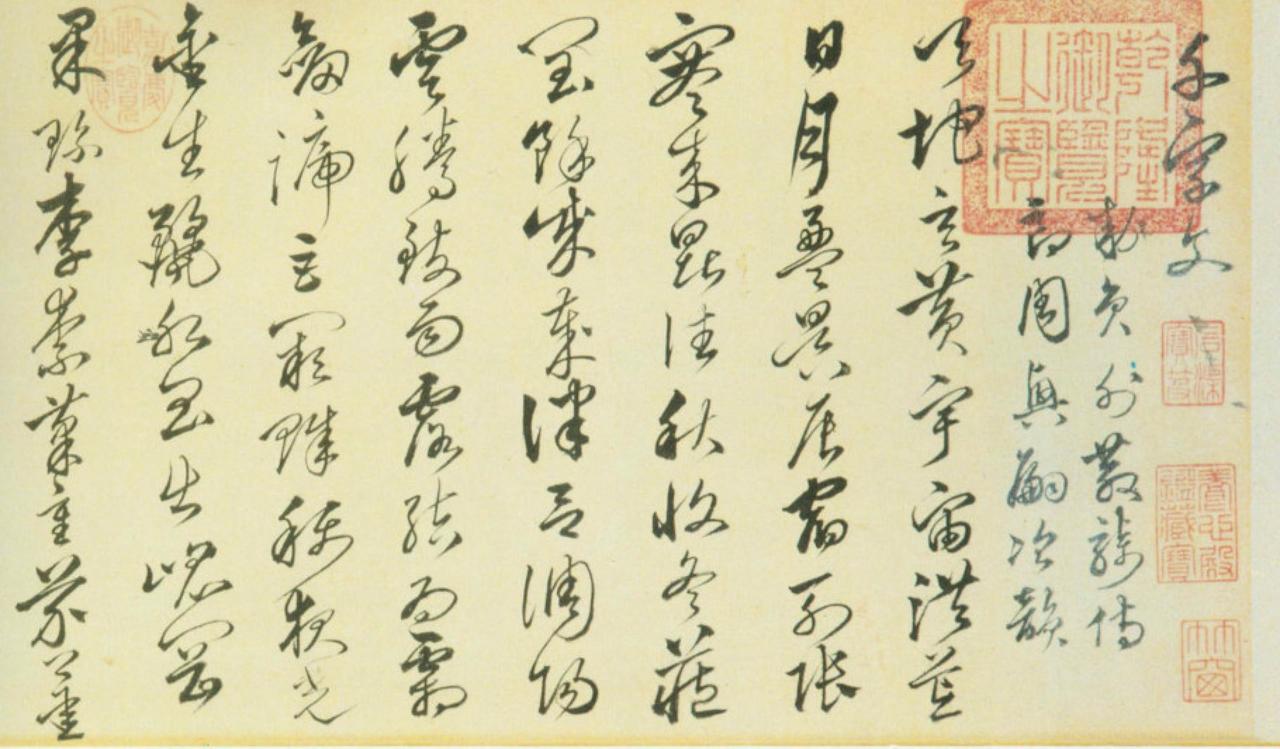 千字文
敕員外散騎侍
郎周興嗣次韻
天地玄黃宇宙洪荒
日月盈昃辰宿列張
寒來暑往秋收冬藏
閏餘成歲律呂調陽
雲騰致雨露結為霜
劒號巨闕珠稱夜光
金生麗水玉出崐岡
果珍李柰菜重芥薑
乾隆御覽之寶
石渠寶笈
養心殿鑑藏寶
嘉慶御覽之寶